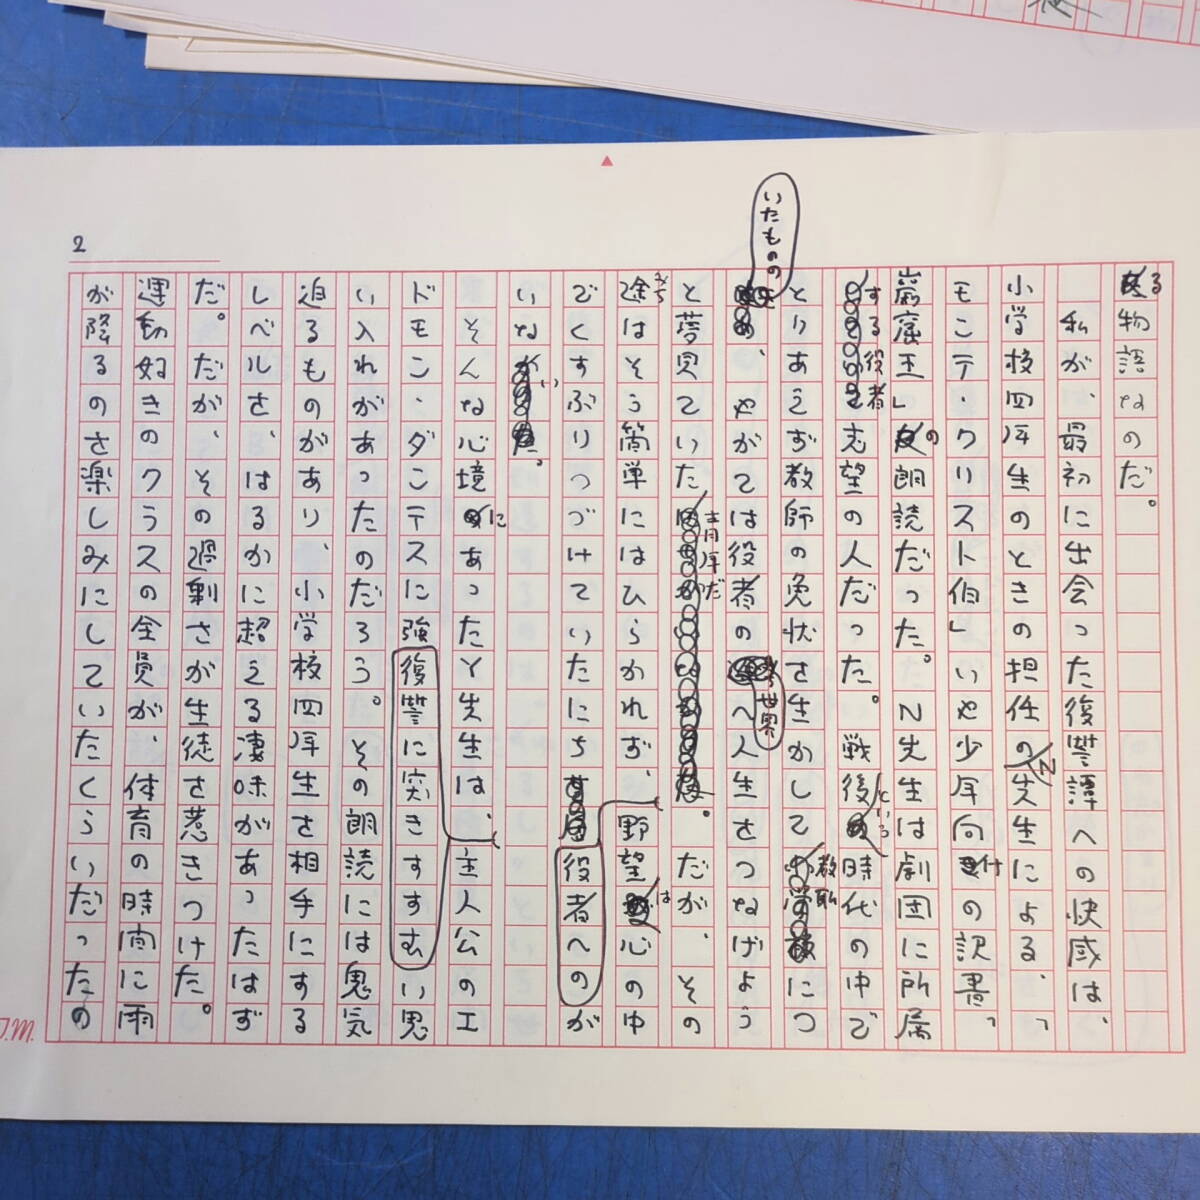 2
る物語なのだ。
私が、最初に出会った復讐譚への快感は、
小学校四年生のときの担任のN先生による、「
モンテ・クリスト伯」いや少年向付の訳書、「
巌窟王」の朗読だった。N先生は劇団に所属
する役者志望の人だった。戦後という時代の中で
とりあえず教師の免状を生かして教職につ
いたものの、やがては役者の世界へ人生をつなげよう
と夢見ていた青年だ。だが、その
途はそう簡単にはひらかれず、野望は心の中
みち
でくすぶりつづけていたにち役者へのが
いない。
そんな心境にあったN先生は、主人公のエ
ドモン・ダンテスに強復讐に突きすすむい思
い入れがあったのだろう。その朗読には鬼気
迫るものがあり、小学校四年生を相手にする
レベルを、はるかに超える凄味があったはず
だ。だが、その過剰さが生徒を惹きつけた。
運動好きのクラスの全員が、体育の時間に雨
が降るのを楽しみにしていたくらいだったの
J.M.